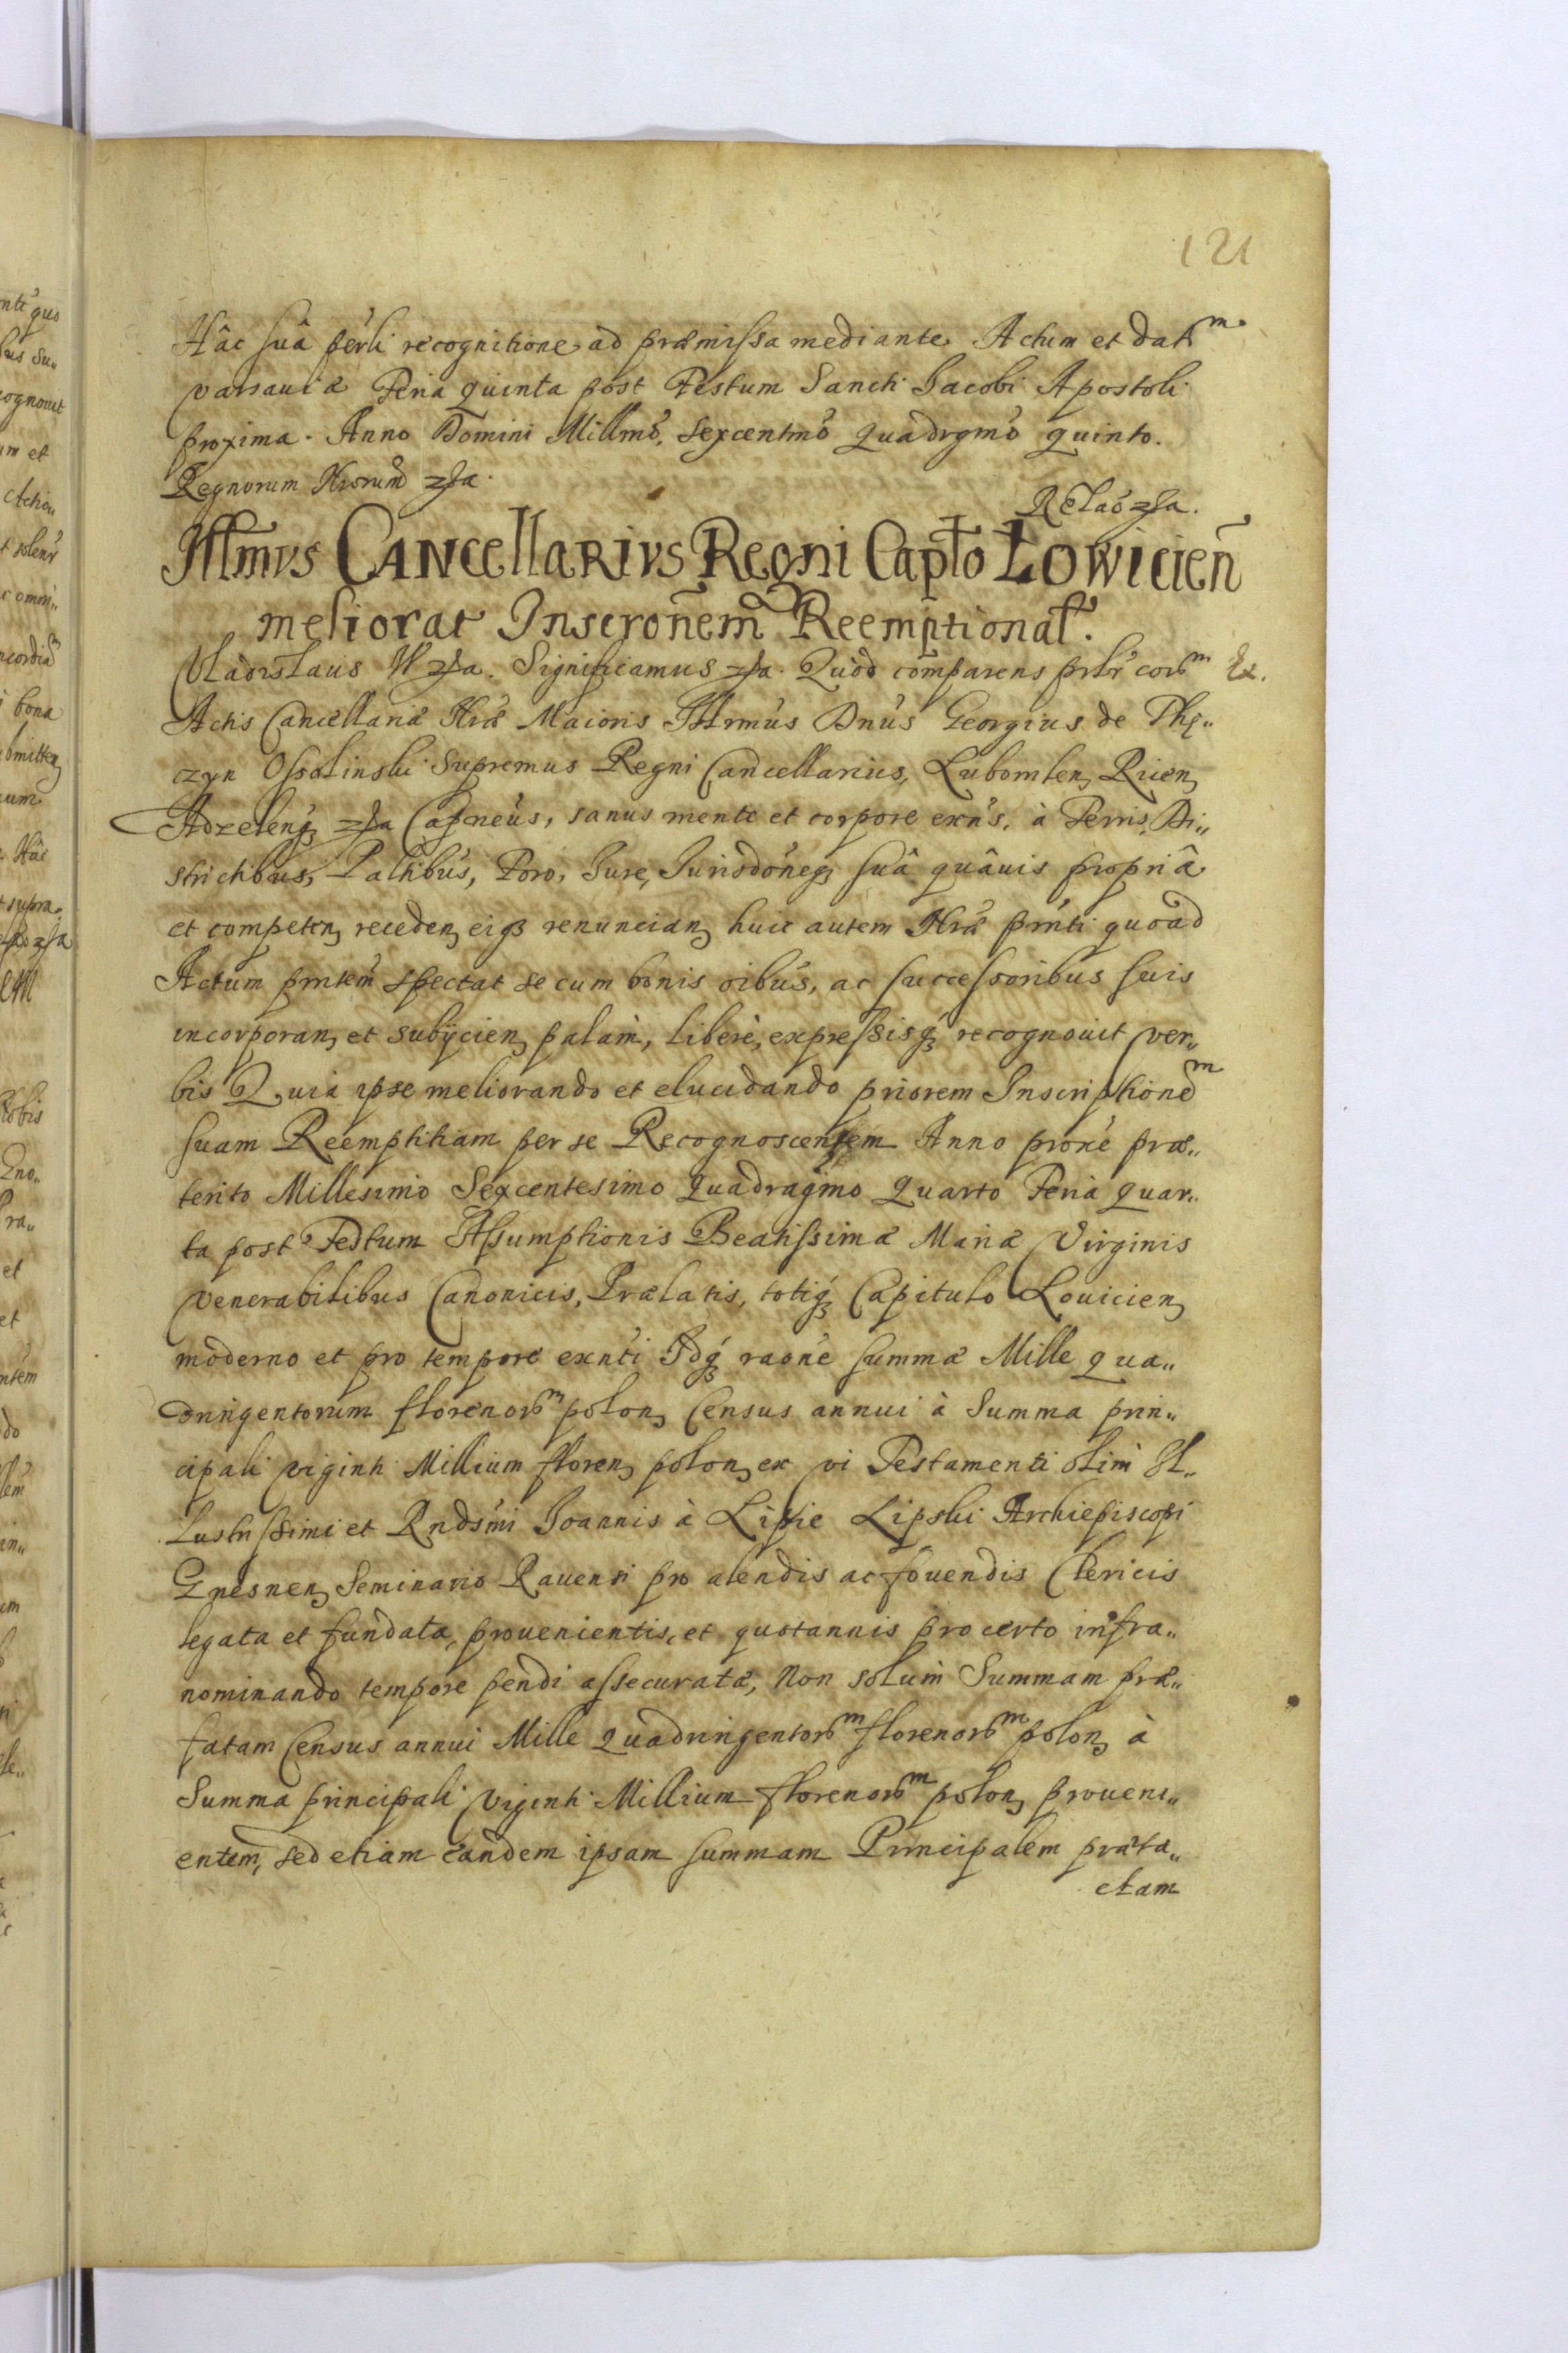 121
Hâc suâ pẽrli recognitione ad præmissa mediante. Actum et Datᵐ
varsauiæ Feria quinta post Festum Sancti Jacobi Apostoli
proxima. Anno Domini Millmõ, Sexcentmõ Quadrgmõ quinto.
Regnorum Nrorum zſa.
Relaõ zſa.
Illmvs CANcellARIVS Regni Capło ŁOWicieñ
meliorat Inscroñem Reemptional.
Vladislaus IV zſa. Significamus zſa. Quòd comparens prlr corᵐ
Ex.
Actis Cancellariæ Nræ Maioris Illrmus Dnus Georgius de The„
czyn Ossolinski Supremus Regni Cancellarius, Lubomlen, Ricen,
Adzelenq zſa Capneus, sanus mente et corpore exns, à Terris, Di„
strictibus, Paltibus, Foro, Jure, Jurisdõneq suâ quâuis propriâ
et competen, receden, eiq renuncian, huic autem Nræ pñti quoad
Actum pntem spectat se cum bonis oibus, ac successoribus suis
incorporan, et subijcien, palàm, liberè, expressisq recognouit ver„
bis Quia ipse meliorando et elucidando priorem Inscriptioneᵐ
suam Reemptitiam per se Recognoscentem Anno proxè præ„
terito Millesimo Sexcentesimo Quadragmo Quarto Feria quar„
ta post Festum Assumptionis Beatissimæ Mariæ Virginis
venerabilibus Canonicis, Prælatis, totiq Capitulo Louicien,
moderno et pro tempore exñti Idq raõne summæ Mille qua„
dringentorum florenorᵐ polon, Census annui à Summa prin„
cipali viginti Millium floren, polon, ex vi Testamenti olim Il„
lustrissimi et Rndsmi Joannis à Lipie Lipski Archiepiscopi
Gnesnen, Seminario Rauensi pro alendis ac fouendis Clericis
legata et fundata, prouenientis, et quotannis pro certo infra„
nominando tempore pendi assecuratæ, non solum Summam præ„
fatam Census annui Mille Quadringentorᵐ florenorᵐ polon, à
Summa principali viginti Millium florenorᵐ polon, proueni„
entem, sed etiam eandem ipsam summam Principalem præta„
ctam